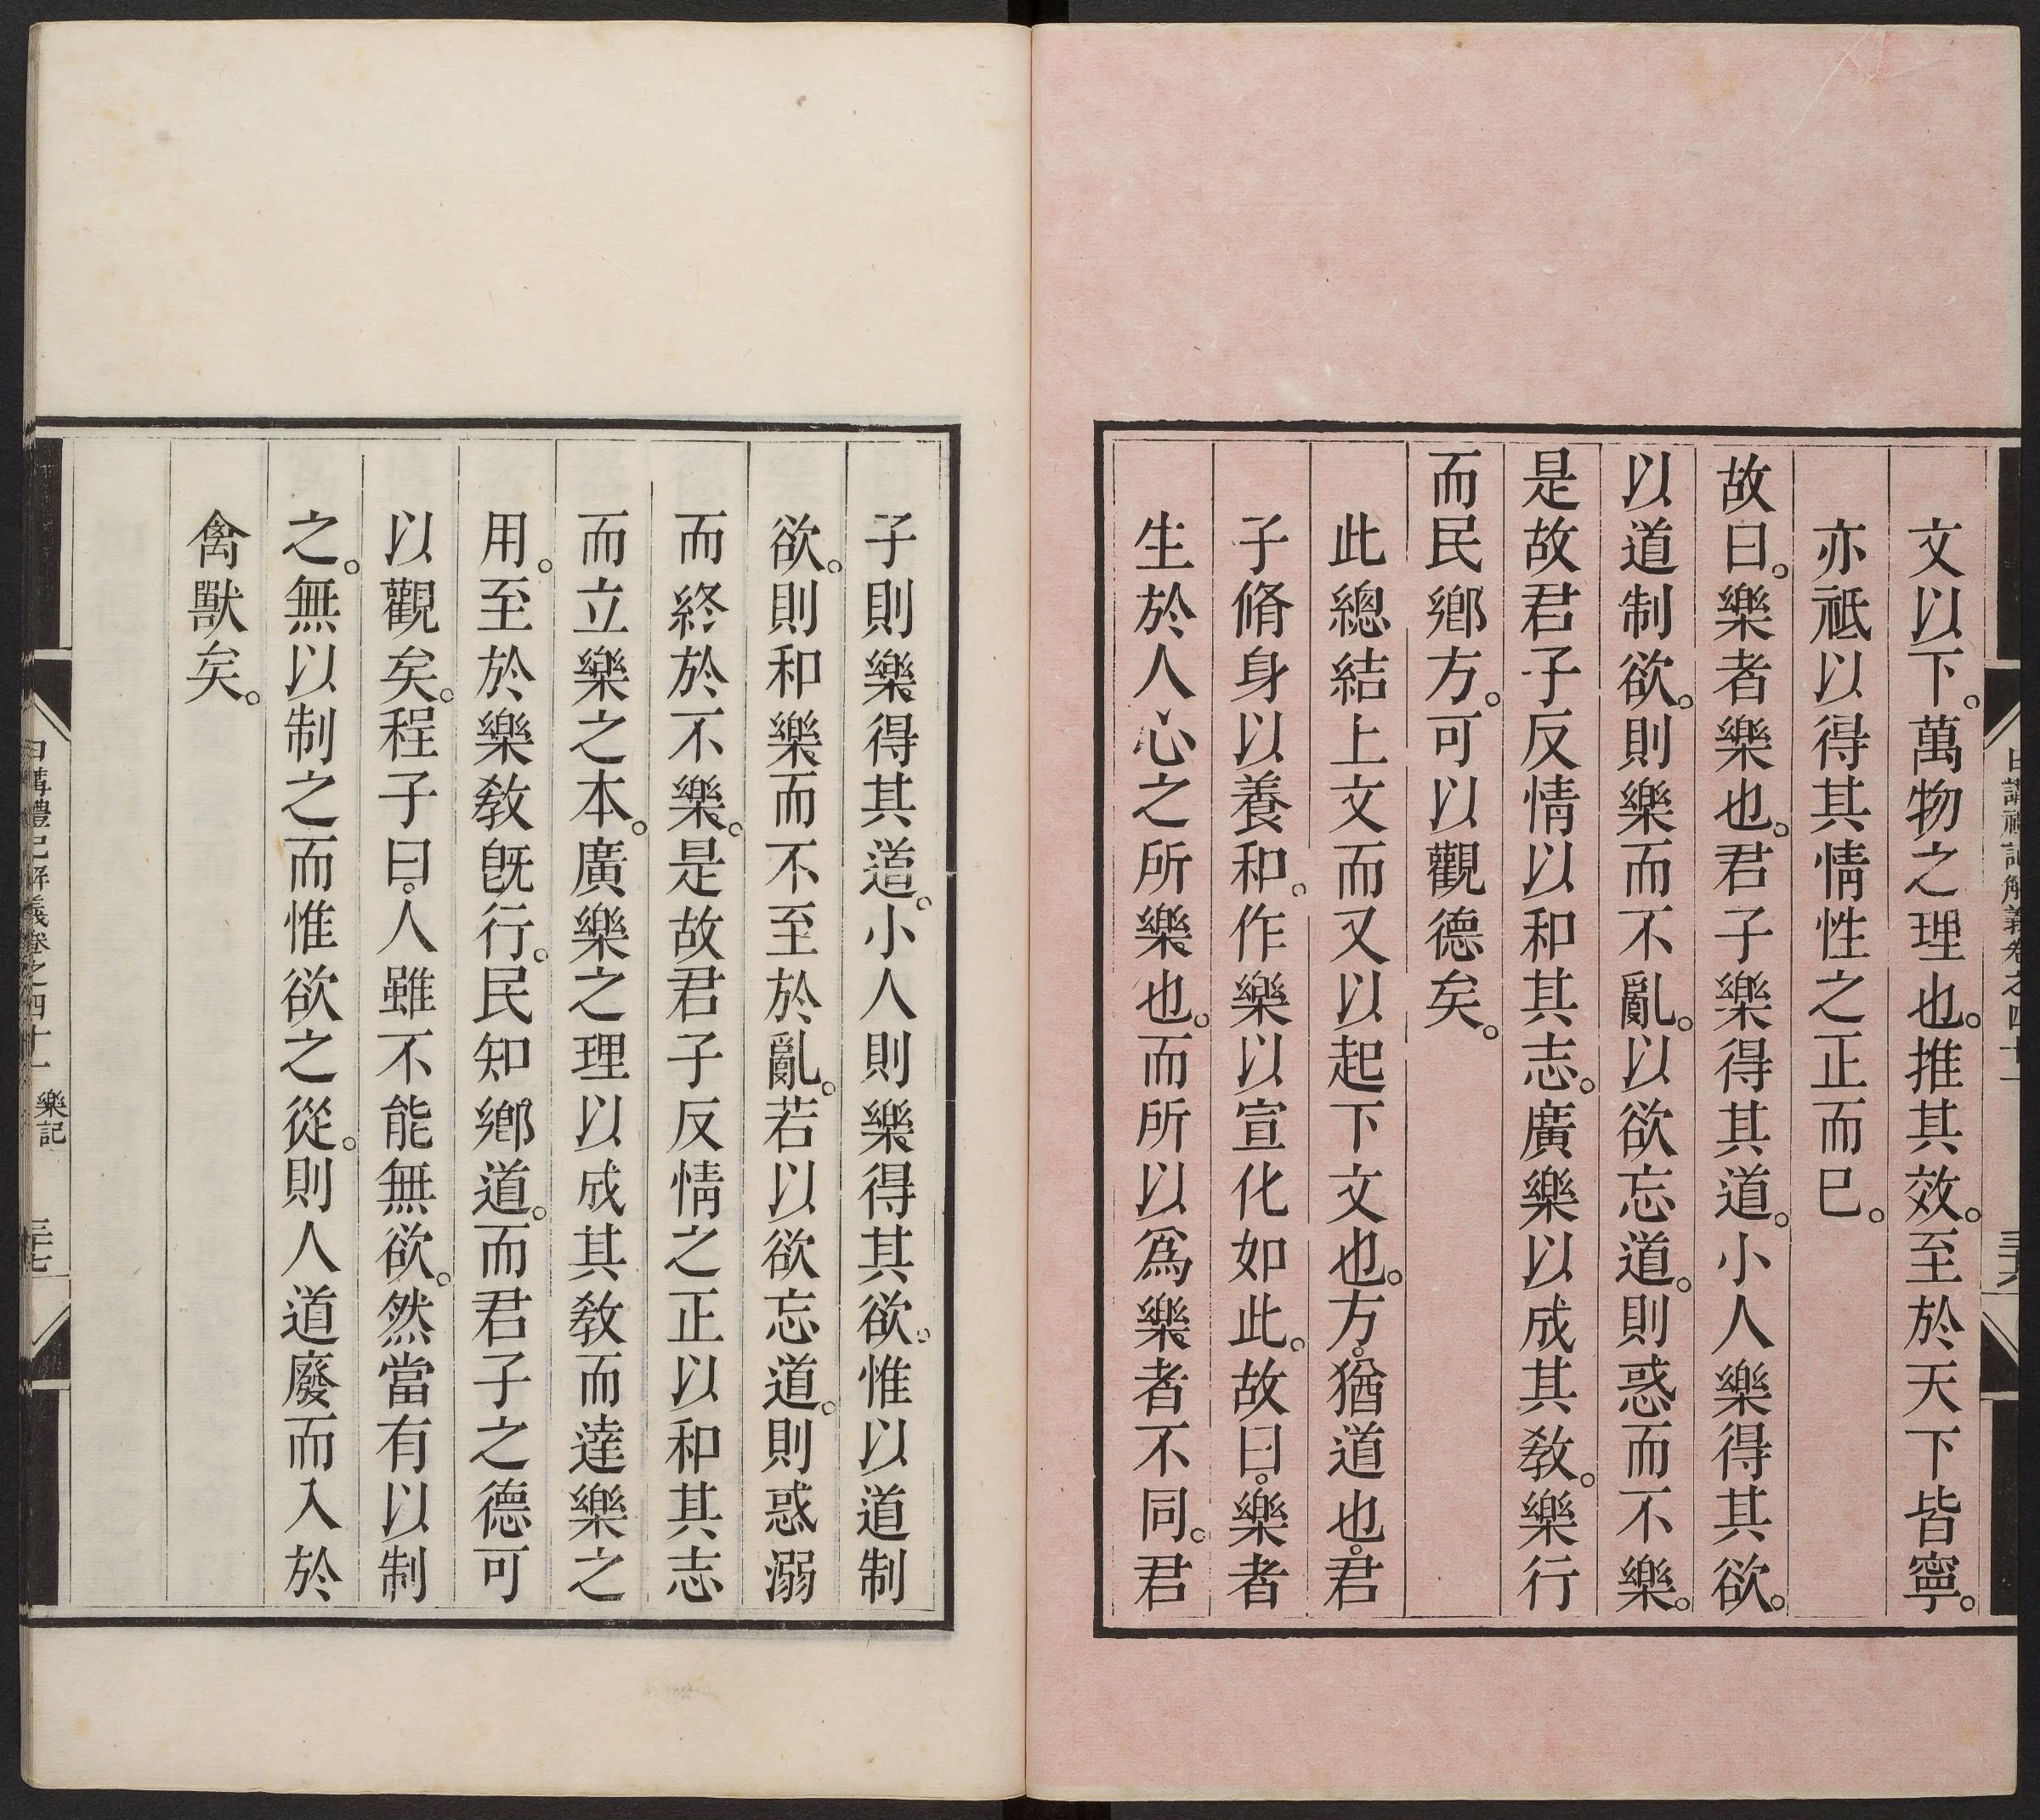 日講禮記解義卷之四十一
三十六
文以下。萬物之理也。推其效。至於天下皆寧。
亦祗以得其情性之正而已。
故曰。樂者樂也。君子樂得其道。小人樂得其欲。
以道制欲。則樂而不亂。以欲忘道。則惑而不樂。
是故君子反情以和其志。廣樂以成其教。樂行
而民鄉方。可以觀德矣。
此總結上文而又以起下文也。方。猶道也。君
子脩身以養和。作樂以宣化如此。故曰。樂者
生於人心之所樂也。而所以爲樂者不同。君
子則樂得其道。小人則樂得其欲。惟以道制
欲。則和樂而不至於亂。若以欲忘道。則惑溺
而終於不樂。是故君子反情之正以和其志
而立樂之本。廣樂之理以成其教而達樂之
用。至於樂教旣行。民知鄉道。而君子之德可
以觀矣。程子曰。人雖不能無欲。然當有以制
之。無以制之而惟欲之從。則人道廢而入於
禽獸矣。
日講禮記解義卷之四十一
樂記
三十七